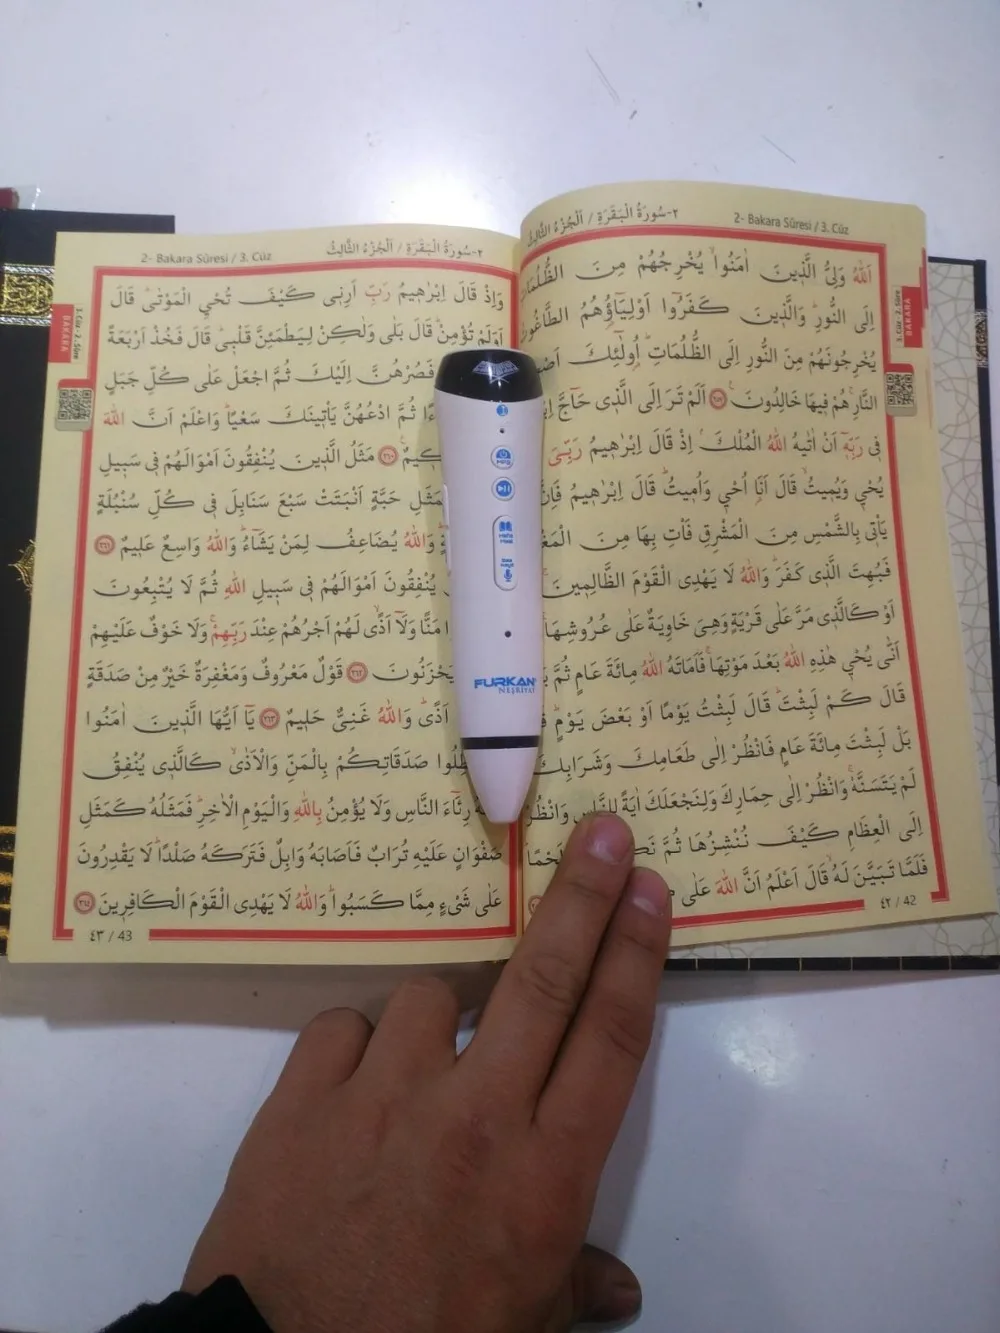 ٢-سُورَةُ الْبَقَرَةِ / اَلْجُزْءُ الثَّالِثُ
2- Bakara Sûresi / 3. Cüz
اَللّٰهُ وَلِيُّ الَّذٖينَ اٰمَنُوا يُخْرِجُهُمْ مِنَ الظُّلُمَاتِ
اِلَى النُّورِ وَالَّذٖينَ كَفَرُٓوا اَوْلِيَٓاؤُهُمُ الطَّاغُوتُ
يُخْرِجُونَهُمْ مِنَ النُّورِ اِلَى الظُّلُمَاتِ اُو۬لٰٓئِكَ
النَّارِ هُمْ فٖيهَا خَالِدُونَ ٢٥٧ اَلَمْ تَرَ اِلَى الَّذٖي حَٓاجَّ
فٖي رَبِّهٖٓ اَنْ اٰتٰيهُ اللّٰهُ الْمُلْكَ اِذْ قَالَ اِبْرٰهٖيمُ رَبِّيَ
يُحْيٖ وَيُمٖيتُ قَالَ اَنَا۬ اُحْيٖ وَاُمٖيتُ قَالَ اِبْرٰهٖيمُ فَاِنَّ
يَأْتٖي بِالشَّمْسِ مِنَ الْمَشْرِقِ فَأْتِ بِهَا مِنَ
فَبُهِتَ الَّذٖي كَفَرَ وَاللّٰهُ لَا يَهْدِي الْقَوْمَ الظَّالِمٖينَ
اَوْ كَالَّذٖي مَرَّ عَلٰى قَرْيَةٍ وَهِيَ خَاوِيَةٌ عَلٰى عُرُوشِهَا
اَنّٰى يُحْيٖ هٰذِهِ اللّٰهُ بَعْدَ مَوْتِهَا فَاَمَاتَهُ اللّٰهُ مِائَةَ عَامٍ ثُمَّ
قَالَ كَمْ لَبِثْتَ قَالَ لَبِثْتُ يَوْمًا اَوْ بَعْضَ يَوْمٍ
بَلْ لَبِثْتَ مِائَةَ عَامٍ فَانْظُرْ اِلٰى طَعَامِكَ وَشَرَابِكَ
لَمْ يَتَسَنَّهْ وَانْظُرْ اِلٰى حِمَارِكَ وَلِنَجْعَلَكَ اٰيَةً لِلنَّاسِ وَانْظُرْ
اِلَى الْعِظَامِ كَيْفَ نُنْشِزُهَا ثُمَّ لَحْمًا
فَلَمَّا تَبَيَّنَ لَهُ قَالَ اَعْلَمُ اَنَّ اللّٰهَ عَلٰى
٤٢ / 42
3. Cüz - 2. Sûre
BAKARA
2- Bakara Sûresi / 3. Cüz
٢-سُورَةُ الْبَقَرَةِ / اَلْجُزْءُ الثَّالِثُ
وَاِذْ قَالَ اِبْرٰهٖيمُ رَبِّ اَرِنٖي كَيْفَ تُحْيِ الْمَوْتٰى قَالَ
اَوَلَمْ تُؤْمِنْ قَالَ بَلٰى وَلٰكِنْ لِيَطْمَئِنَّ قَلْبٖي قَالَ فَخُذْ اَرْبَعَةً
فَصُرْهُنَّ اِلَيْكَ ثُمَّ اجْعَلْ عَلٰى كُلِّ جَبَلٍ
ثُمَّ ادْعُهُنَّ يَأْتٖينَكَ سَعْيًا وَاعْلَمْ اَنَّ اللّٰهَ
٢٦٠ مَثَلُ الَّذٖينَ يُنْفِقُونَ اَمْوَالَهُمْ فٖي سَبٖيلِ
كَمَثَلِ حَبَّةٍ اَنْبَتَتْ سَبْعَ سَنَابِلَ فٖي كُلِّ سُنْبُلَةٍ
وَاللّٰهُ يُضَاعِفُ لِمَنْ يَشَٓاءُ وَاللّٰهُ وَاسِعٌ عَلٖيمٌ ٢٦١
يُنْفِقُونَ اَمْوَالَهُمْ فٖي سَبٖيلِ اللّٰهِ ثُمَّ لَا يُتْبِعُونَ
مَنًّا وَلَٓا اَذًى لَهُمْ اَجْرُهُمْ عِنْدَ رَبِّهِمْ وَلَا خَوْفٌ عَلَيْهِمْ
يَحْزَنُونَ ٢٦٢ قَوْلٌ مَعْرُوفٌ وَمَغْفِرَةٌ خَيْرٌ مِنْ صَدَقَةٍ
اَذًى وَاللّٰهُ غَنِيٌّ حَلٖيمٌ ٢٦٣ يَٓا اَيُّهَا الَّذٖينَ اٰمَنُوا
صَدَقَاتِكُمْ بِالْمَنِّ وَالْاَذٰى كَالَّذٖي يُنْفِقُ
رِئَٓاءَ النَّاسِ وَلَا يُؤْمِنُ بِاللّٰهِ وَالْيَوْمِ الْاٰخِرِ فَمَثَلُهُ كَمَثَلِ
صَفْوَانٍ عَلَيْهِ تُرَابٌ فَاَصَابَهُ وَابِلٌ فَتَرَكَهُ صَلْدًا لَا يَقْدِرُونَ
عَلٰى شَيْءٍ مِمَّا كَسَبُوا وَاللّٰهُ لَا يَهْدِي الْقَوْمَ الْكَافِرٖينَ ٢٦٤
٤٣ / 43
3. Cüz - 2. Sûre
BAKARA
FURKAN
NEŞRİYAT